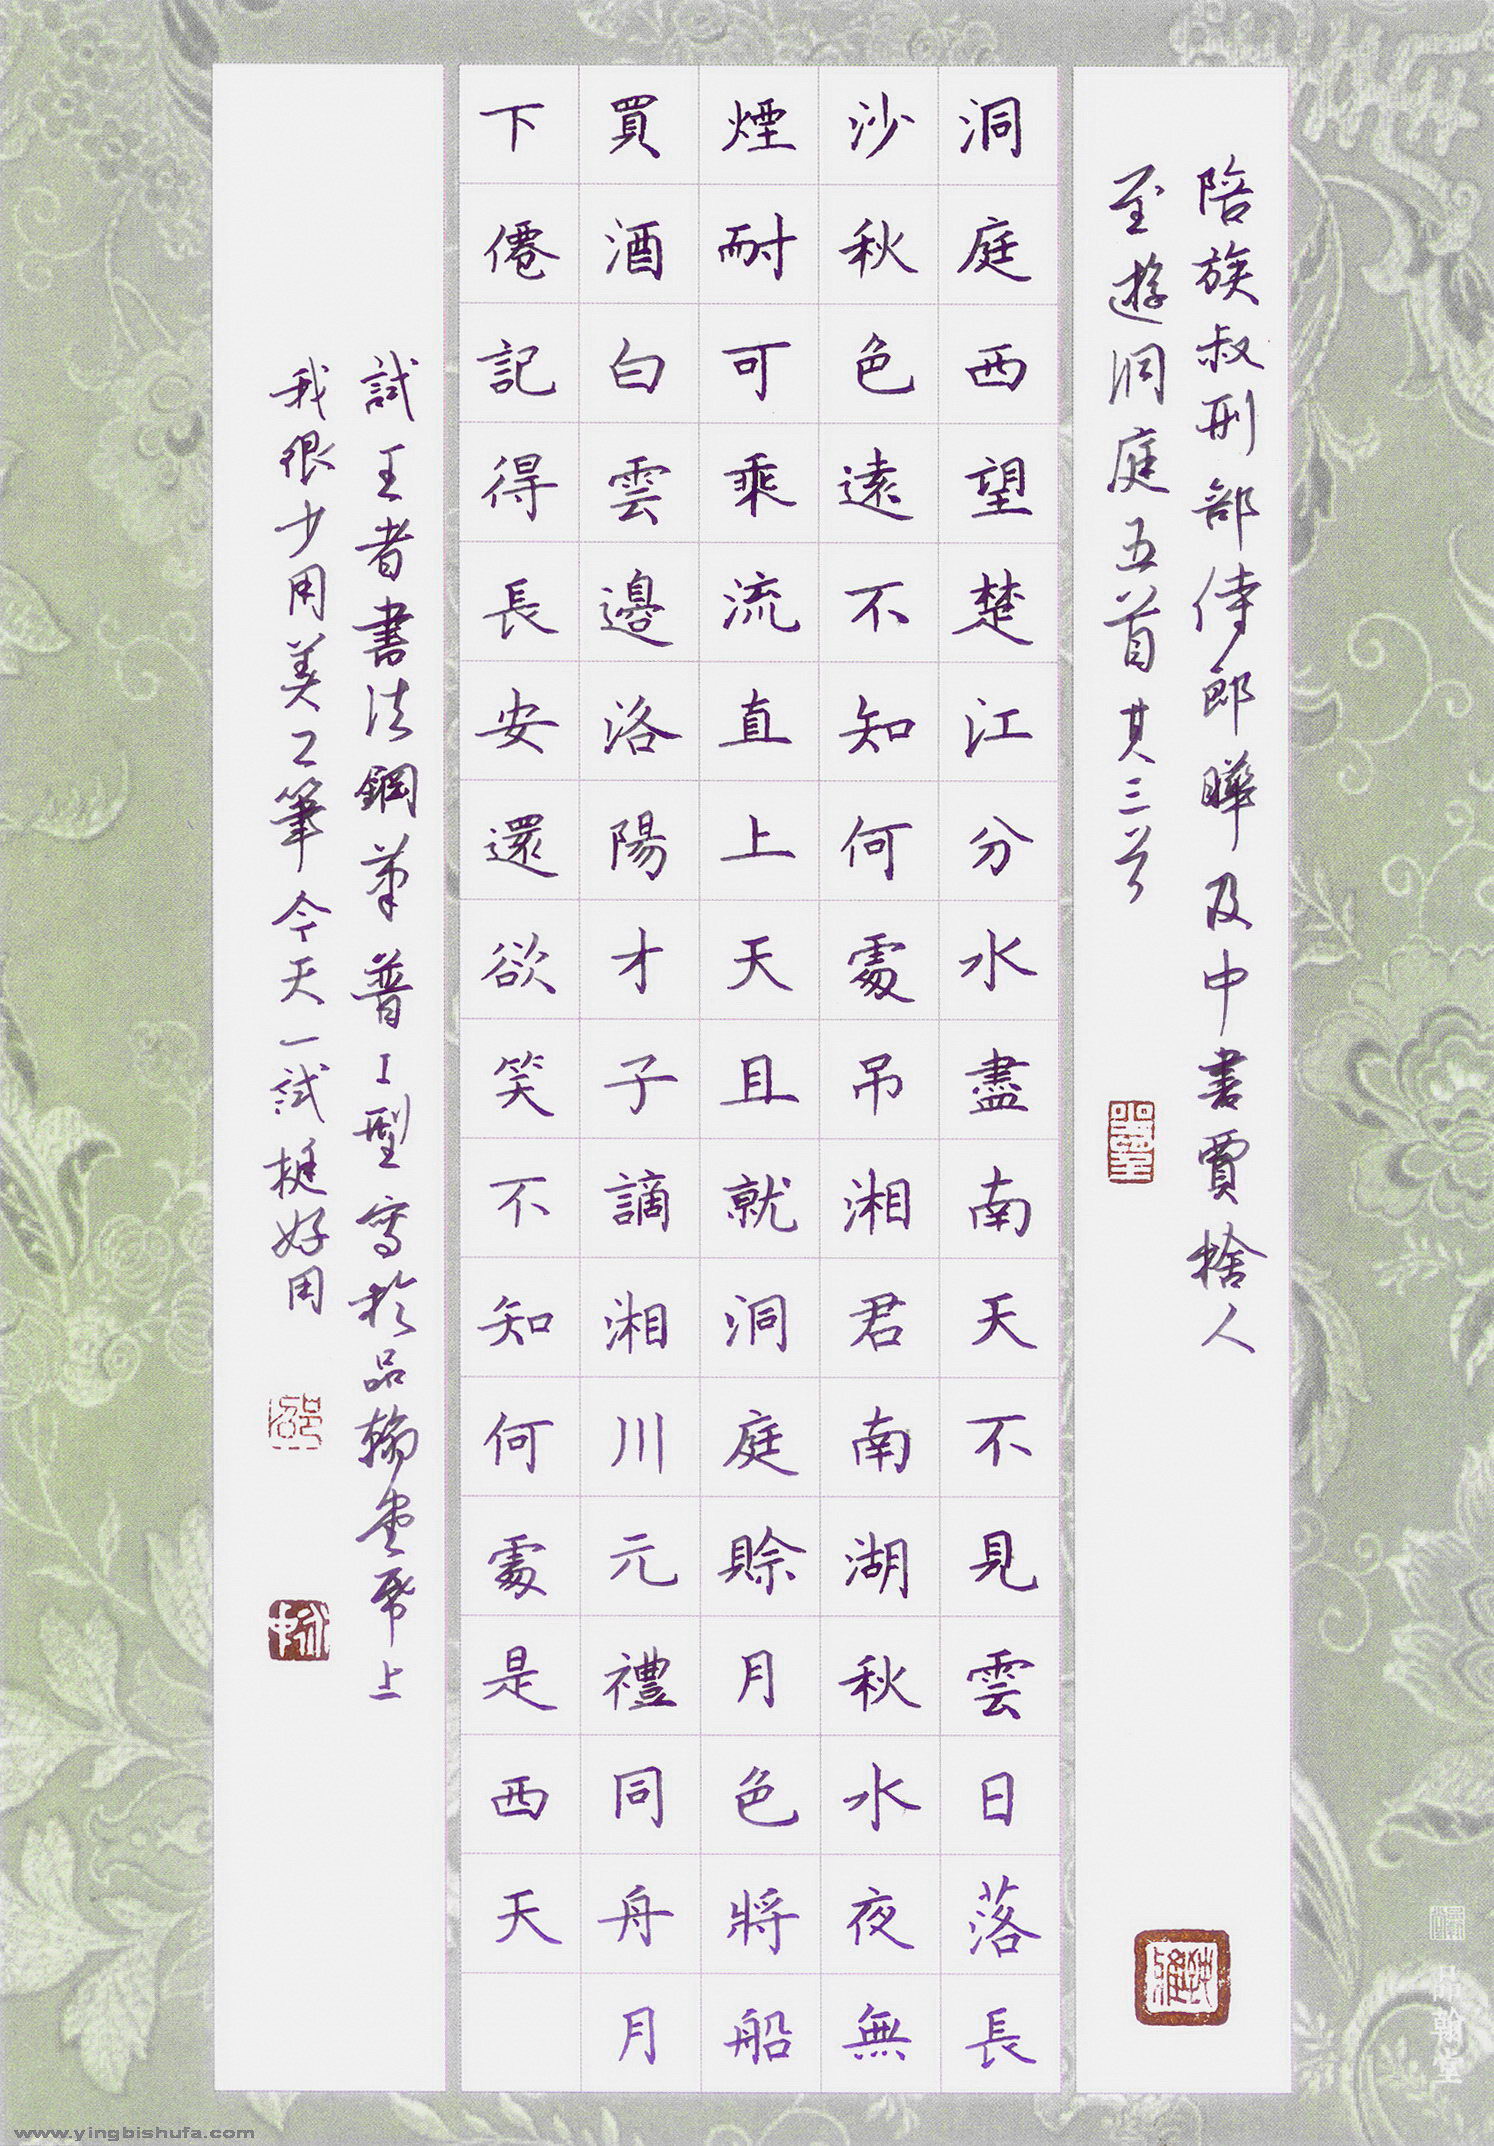 陪族叔刑部侍郎曄及中書賈捨人
至遊洞庭五首其三首
洞庭西望楚江分水盡南天不見雲日落長
沙秋色遠不知何處吊湘君南湖秋水夜無
煙耐可乘流直上天且就洞庭賒月色將船
買酒白雲邊洛陽才子謫湘川元禮同舟月
下僊記得長安還欲笑不知何處是西天
試王者書法鋼筆普工型寫於品翰堂帋上
我很少用美工筆今天一試挺好用
品翰堂
www.yingbishufa.com